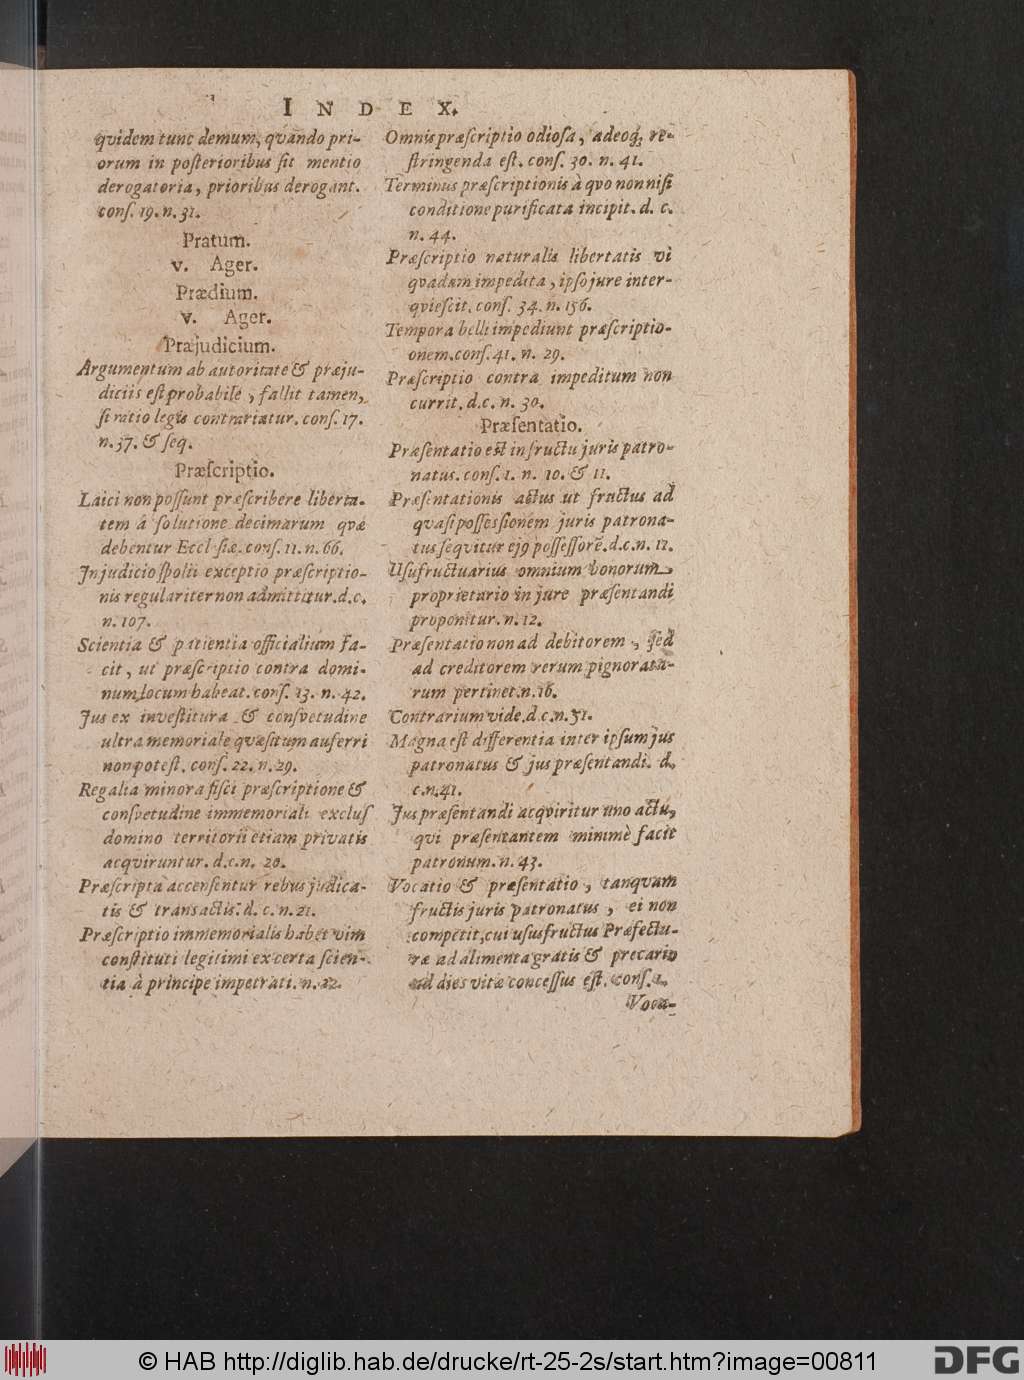 INDEX.
qvidem tunc demum, qvando pri-
orum in poſterioribus fit mentio
derogatoria, prioribus derogant.
conſ. 19. n. 31.
Pratum.
v. Ager.
Prædium.
v. Ager.
Præjudicium.
Argumentum ab autoritate & præju-
diciis eſt probabile, fallit tamen,
ſi ratio legis contrariatur. conſ. 17.
n. 37. & ſeq.
Præſcriptio.
Laici non poſſunt præſcribere liberta-
tem â ſolutione decimarum qvæ
debentur Eccleſiæ. conſ. 11. n. 66.
In judicio ſpolii exceptio præſcriptio-
nis regulariter non admittitur. d. c.
n. 107.
Scientia & patientia officialium fa-
cit, ut præſcriptio contra domi-
num locum habeat. conſ. 13. n. 42.
Jus ex inveſtitura & conſvetudine
ultra memoriale qvæſitum auferri
non poteſt. conſ. 22. n. 29.
Regalia minora fiſci præſcriptione &
conſvetudine immemoriali excluſ
domino territorii etiam privatis
acqviruntur. d. c. n. 20.
Præſcripta accenſentur rebus judica-
tis & transactis. d. c. n. 21.
Præſcriptio immemorialis habet vim
conſtituti legitimi ex certa ſcien-
tia à principe impetrati. n. 22.
Omnis præſcriptio odioſa, adeoq; re-
ſtringenda eſt. conſ. 30. n. 41.
Terminus præſcriptionis à qvo non niſi
conditione purificata incipit. d. c.
n. 44.
Præſcriptio naturalis libertatis vi
qvadam impedita, ipſo jure inter-
qvieſcit. conſ. 34. n. 156.
Tempora belli impediunt præſcriptio-
onem. conſ. 41. n. 29.
Præſcriptio contra impeditum non
currit. d. c. n. 30.
Præſentatio.
Præſentatio est in fructu juris patro-
natus. conſ. 1. n. 10. & 11.
Præſentationis actus ut fructus ad
qvaſi poſſeſſionem juris patrona-
tus ſeqvitur ejꝰ poſſeſſorẽ. d. c. n. 12.
Uſufructuarius omnium bonorum,
proprietario in jure præſentandi
proponitur. n. 12.
Præſentatio non ad debitorem, ſed
ad creditorem rerum pignorata-
rum pertinet. n. 16.
Contrarium vide. d. c. n. 31.
Magna eſt differentia inter ipſum jus
patronatus & jus præſentandi. d.
c. n. 41.
Jus præſentandi acqviritur uno actu,
qvi præſentantem minimè facit
patronum. n. 43.
Vocatio & præſentatio, tanqvam
fructis juris patronatus, ei non
competit, cui uſusfructus Præfectu-
ræ ad alimenta gratis & precario
ad dies vitæ conceſſus eſt. conſ. 1.
Voca-
© HAB http://diglib.hab.de/drucke/rt-25-2s/start.htm?image=00811
DFG